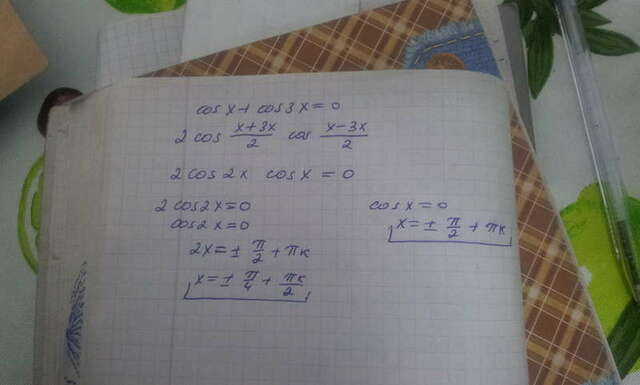 cos x + cos 3x = 0
2 cos (x+3x)/2 cos (x-3x)/2
2 cos 2x cos x = 0
2 cos 2x = 0
cos 2x = 0
2x = ± π/2 + πk
x = ± π/4 + πk/2
cos x = 0
x = ± π/2 + πk